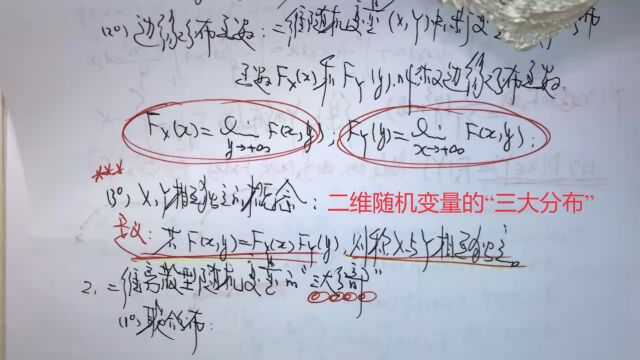 (2°) 边缘分布函数：二维随机变量(X,Y)中
函数 F_X(x)和 F_Y(y) 边缘分布函数.
F_X(x)=lim_{y→+∞} F(x,y)；F_Y(y)=lim_{x→+∞} F(x,y)；
***
(3°) X,Y相互独立的概念：二维随机变量的“三大分布”
定义：若 F(x,y)=F_X(x)F_Y(y)，则称X与Y相互独立。
2. 二维离散型随机变量的“三大分布”
(1°) 联合分布：